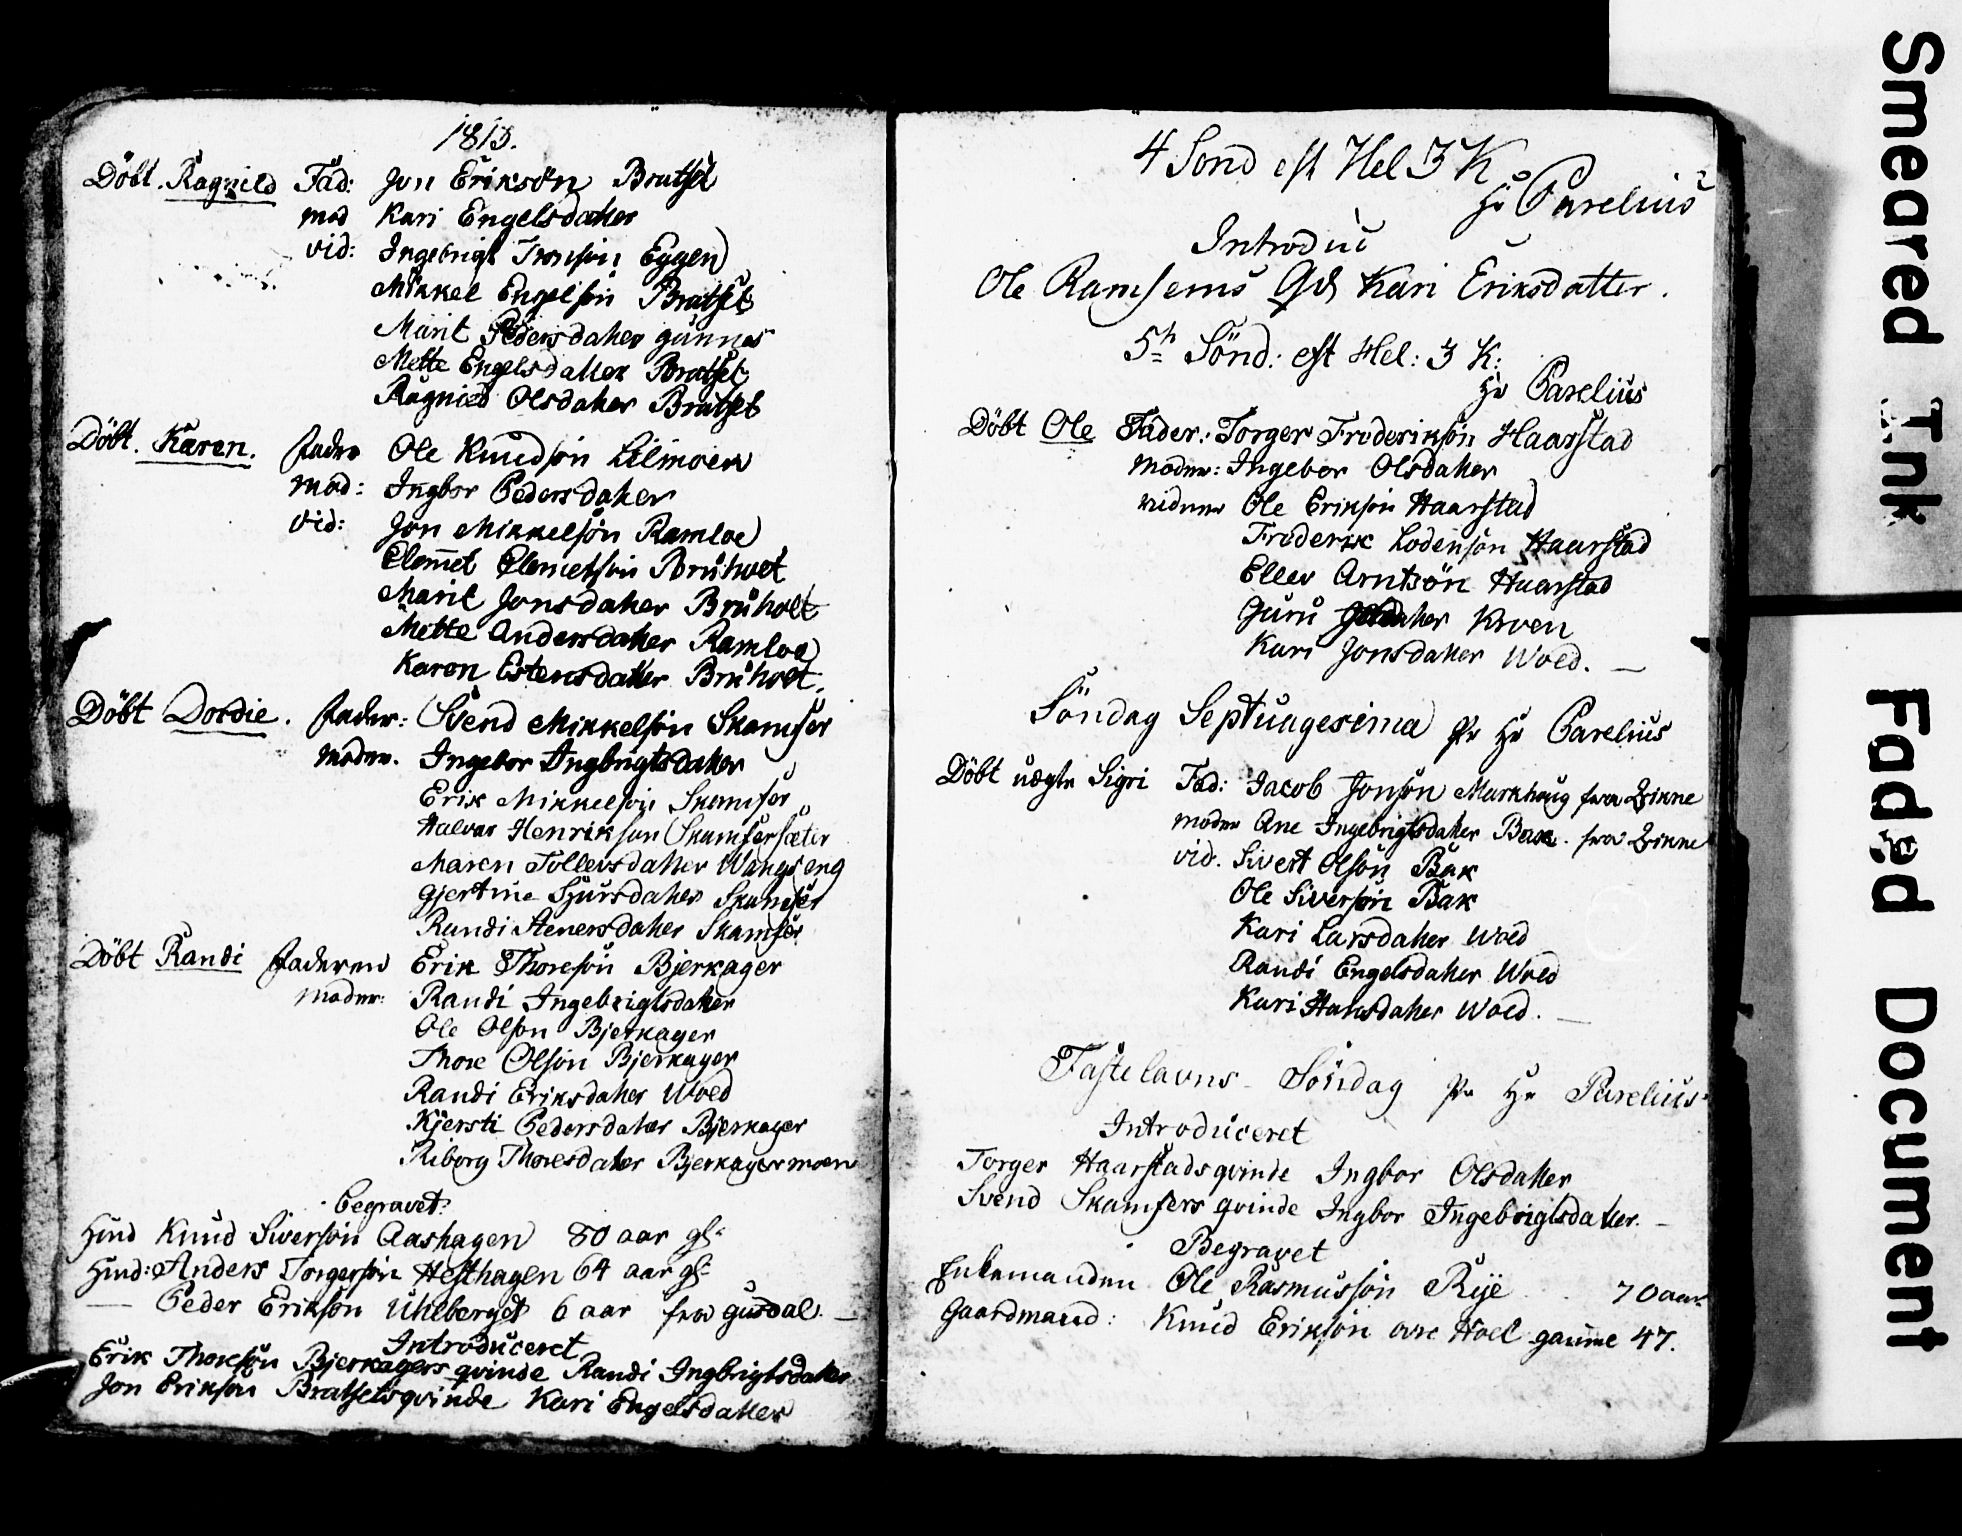 1813.
Döbt. Ragnild Fad: Jon Eriksön Bratset
mod Kari Engelsdatter
vid: Ingebrigt Eggen
Mikkel Engelsön Bratset
Marit Pedersdatter gunnes
Mette Engelsdatter Bratset
Ragnild Olsdatter Bratset
Döbt. Karen. fader Ole Knudsön Lilmoen
mod: Ingbor Pedersdatter
vid: Jon Mikkelsön Ramloe
Clemet Clemetsön Bruholt
Marit Jonsdatter Bruholt
Mette Andersdatter Ramloe
Karen Estensdatter Bruholt.
Döbt Dordie. fader: Svend Mikkelsön Skamfer
moder. Ingebor Ingbrigtsdatter
Erik Mikkelsön Skamfer
Halvor Henriksøn Skamfersæter
Maren Tollevsdatter Wangseng
Gjertrue Sjursdatter Skamfer
Randi Stenersdatter Skamfer
Döbt Randi faderen Erik Thoresön Bjerkager
moder: Randi Ingebrigtsdatter
Ole Olsön Bjerkager
Thore Olsön Bjerkager
Randi Eriksdatter Wold
Kjersti Pedersdatter Bjerkager
Riborg Thoresdatter Bjerkagermoen
Begravet:
Huusd Knud Siversön Aashagen 80 aar gl:
Huusd: Anders Torgersön Hesthagen 64 aar gl:
— Peder Eriksön Uhlberget 6 aar fra gusdal. —
Introduceret
Erik Thoresön Bjerkagers qvinde Randi Ingbrigtsdatter
Jon Eriksön Bratsets qvinde Kari Engelsdatter
4 Sond eft Hel 3 K
Hr Parelius
Introdu
Ole Ramsems Kari Eriksdatter.
5te Sönd: eft Hel: 3 K:
Hr Parelius
Döbt Ole Fader: Torger Frederiksön Haarstad
Moder: Ingebor Olsdatter
vidner Ole Eriksön Haarstad
Frederik Lodensön Haarstad
Ellev Arntsön Haarstad
Guru Kroen
Kari Jonsdatter Wold. —
Söndag Septuagesima Pr Hr Parelius
Döbt uægte Sigri Fad: Jacob Jonsön Markhaug fra
moder Ane Ingebrigtsdatter Bak. fra
vid. Sivert Olsön Bak
Ole Siversön Bak
Kari Larsdatter Wold
Randi Engelsdatter Wold
Kari Hansdatter Wold. —
Fastelavns Söndag Pr Hr Parelius
Introduceret
Torger Haarstads qvinde Ingbor Olsdatter
Svend Skamfers qvinde Ingbor Ingebrigtsdatter. —
Begravet
Enkemanden Ole Rasmussön Rye 70 aar
Gaardmand: Knud Eriksön ovre Hoel gamme 47.
Smeared Ink
Faded Document